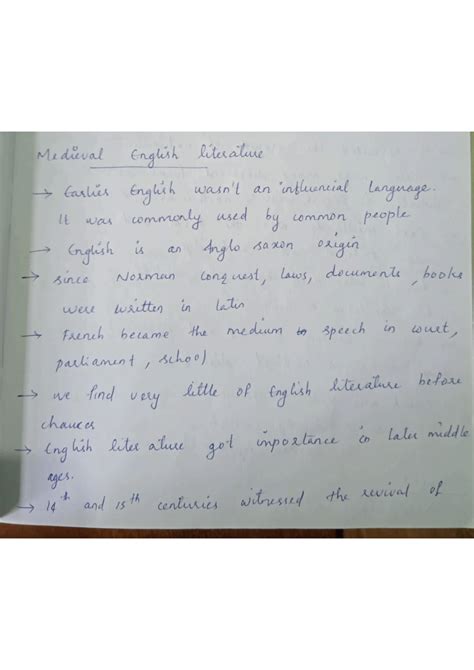 Medieval English literature
→ Earlier English wasn't an influencial language.
It was commonly used by common people
→ English is an Anglo saxon origin
→ since Norman conquest, laws, documents, books
were written in latin
→ French became the medium speech in court,
parliament, school
→ we find very little of English literature before
chaucer
→ English literature got importance in later middle
ages.
→ 14th and 15th centuries witnessed the revival of